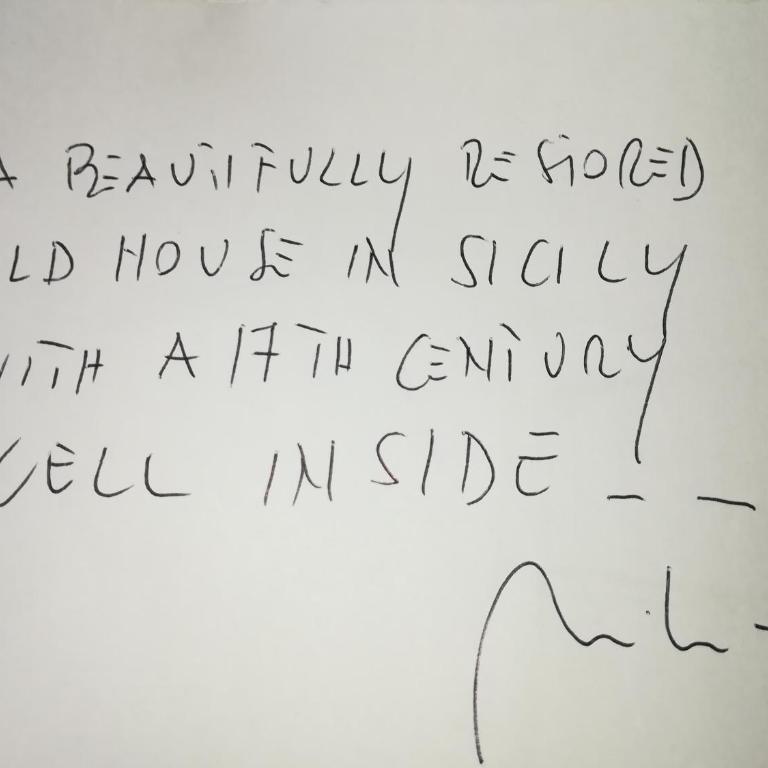 A BEAUTIFULLY RESTORED
LD HOUSE IN SICILY
WITH A 17TH CENTURY
CELL INSIDE _ _